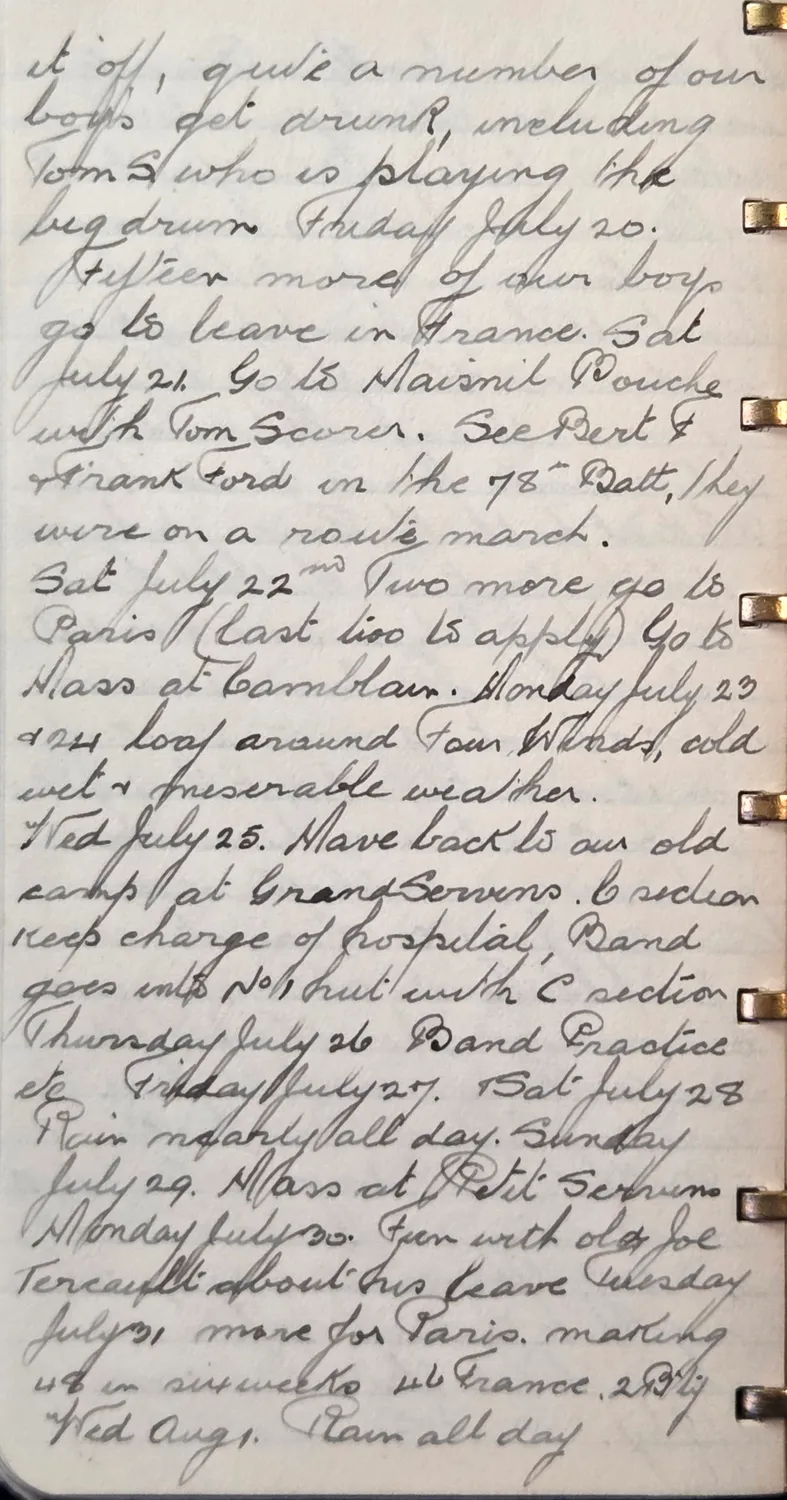 it off, quite a number of our
boys get drunk, including
Tom S who is playing the
big drum Friday July 20.
Fifteen more of our boys
go to leave in France. Sat
July 21. Go to Maisnil Bouche
with Tom Scorer. See Bert F
+ Frank Ford in the 78th Batt, they
were on a route march.
Sat July 22nd Two more go to
Paris (last two to apply) Go to
Mass at Camblain. Monday July 23
& 24 loaf around Four Winds, cold
wet & meserable weather.
Wed July 25. Move back to our old
camp at Grand Servins. C section
keep charge of hospital, Band
goes into No 1 hut with C section
Thursday July 26 Band Practice
etc Friday July 27. Sat July 28
Rain nearly all day. Sunday
July 29. Mass at Petit Servins
Monday July 30. Fun with old Joe
Tereault about his leave Tuesday
July 31 more for Paris. making
48 in six weeks 46 France. 2
Wed Aug 1. Rain all day